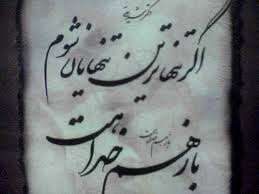 دکتر شریعتی
اگر تنهاترین تنهایان شوم
باز هم خدا هست